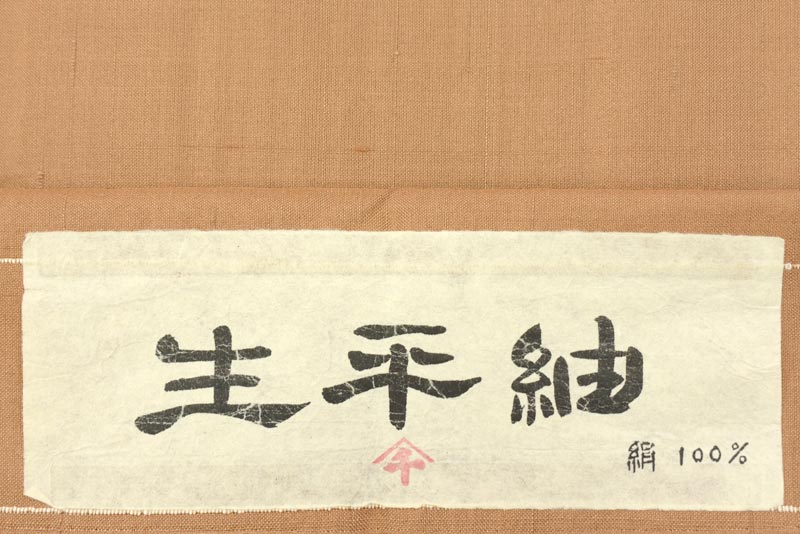 生平紬
千
絹 100%